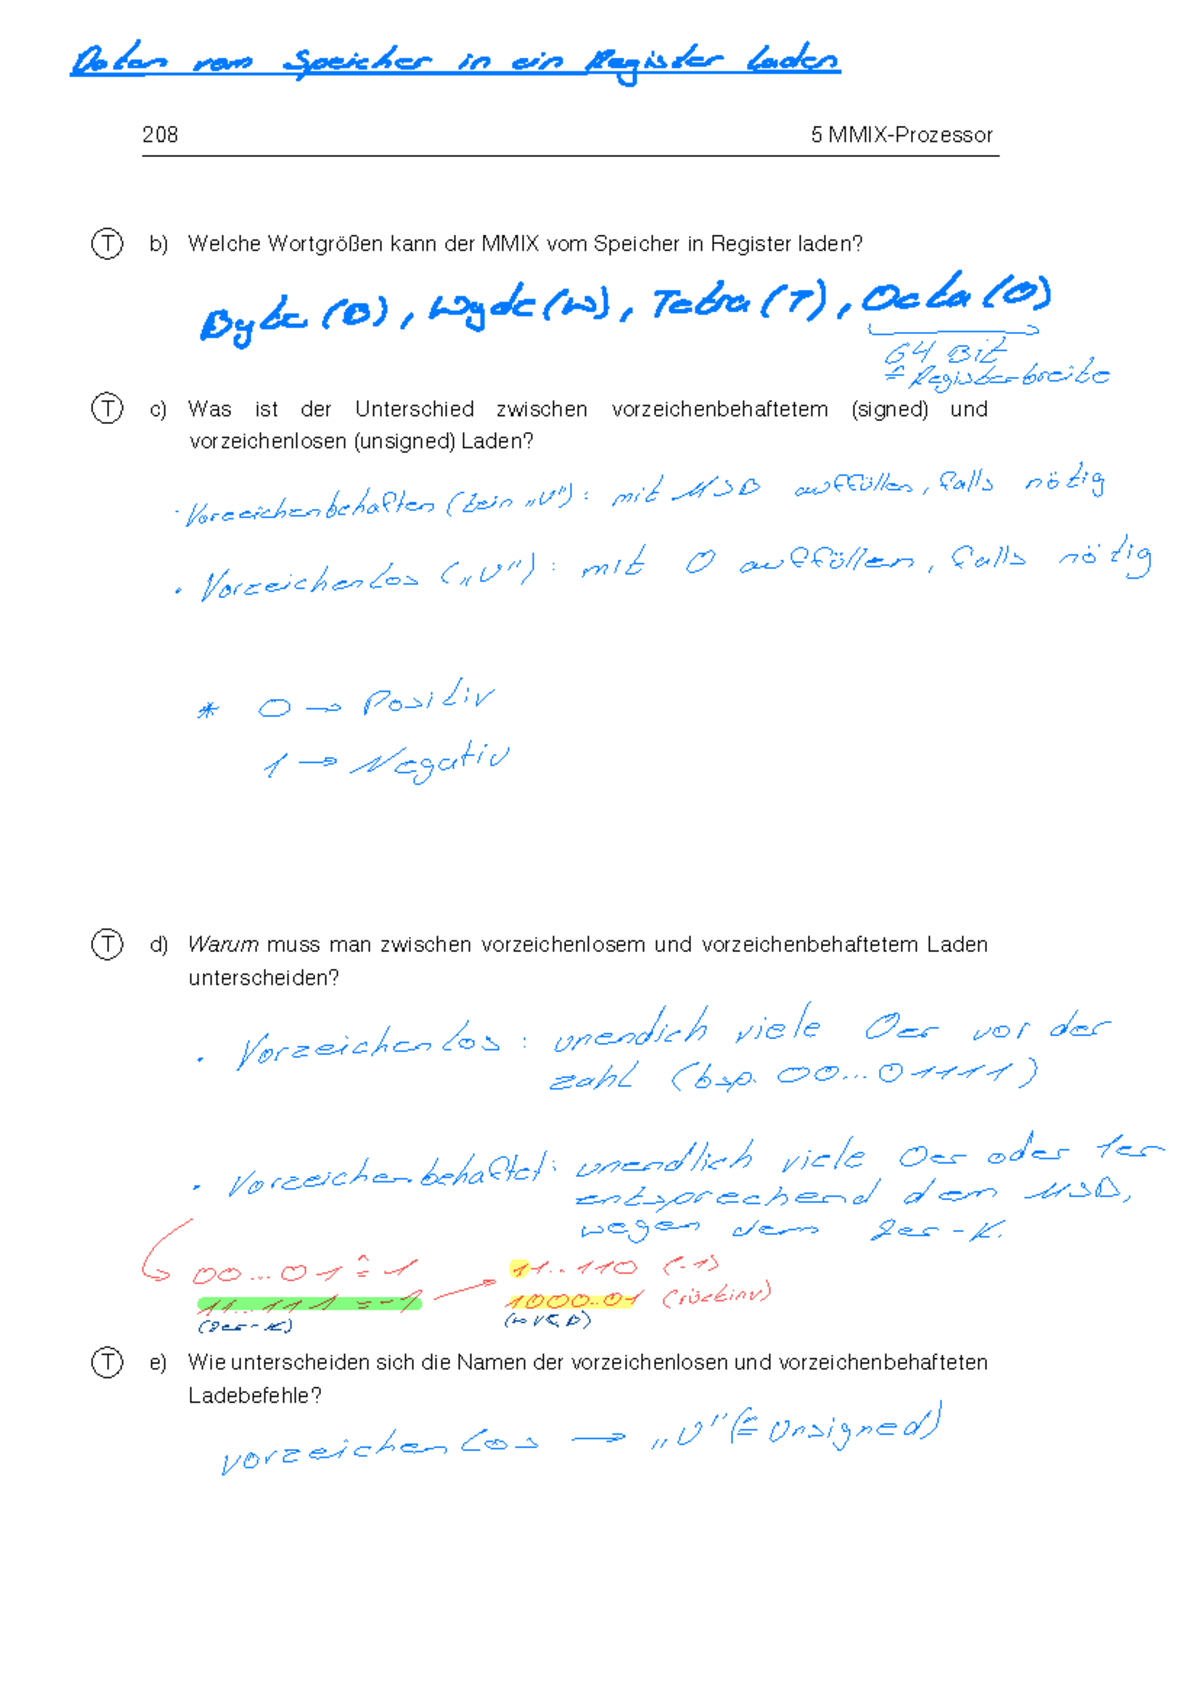 Daten vom Speicher in ein Register laden
208 5 MMIX-Prozessor
T b) Welche Wortgrößen kann der MMIX vom Speicher in Register laden?
Byte (B), Wyde (W), Tetra (T), Octa (O)
64 Bit
≙ Registerbreite
T c) Was ist der Unterschied zwischen vorzeichenbehaftetem (signed) und
vorzeichenlosen (unsigned) Laden?
· Vorzeichenbehaften (kein „U"): mit MSB auffüllen, falls nötig
· Vorzeichenlos („U"): mit 0 auffüllen, falls nötig
* 0 → Positiv
1 → Negativ
T d) Warum muss man zwischen vorzeichenlosem und vorzeichenbehaftetem Laden
unterscheiden?
· Vorzeichenlos: unendich viele 0er vor der
zahl (bsp. 00...01111)
· Vorzeichenbehaftet: unendlich viele 0er oder 1er
entsprechend dem MSB,
wegen dem 2er-K.
00...01 ≙ 1 11...110 (-1)
11...111 = -1 1000..01 (rückinv)
(2er-K)
T e) Wie unterscheiden sich die Namen der vorzeichenlosen und vorzeichenbehafteten
Ladebefehle?
vorzeichenlos → „U" (≙ Unsigned)